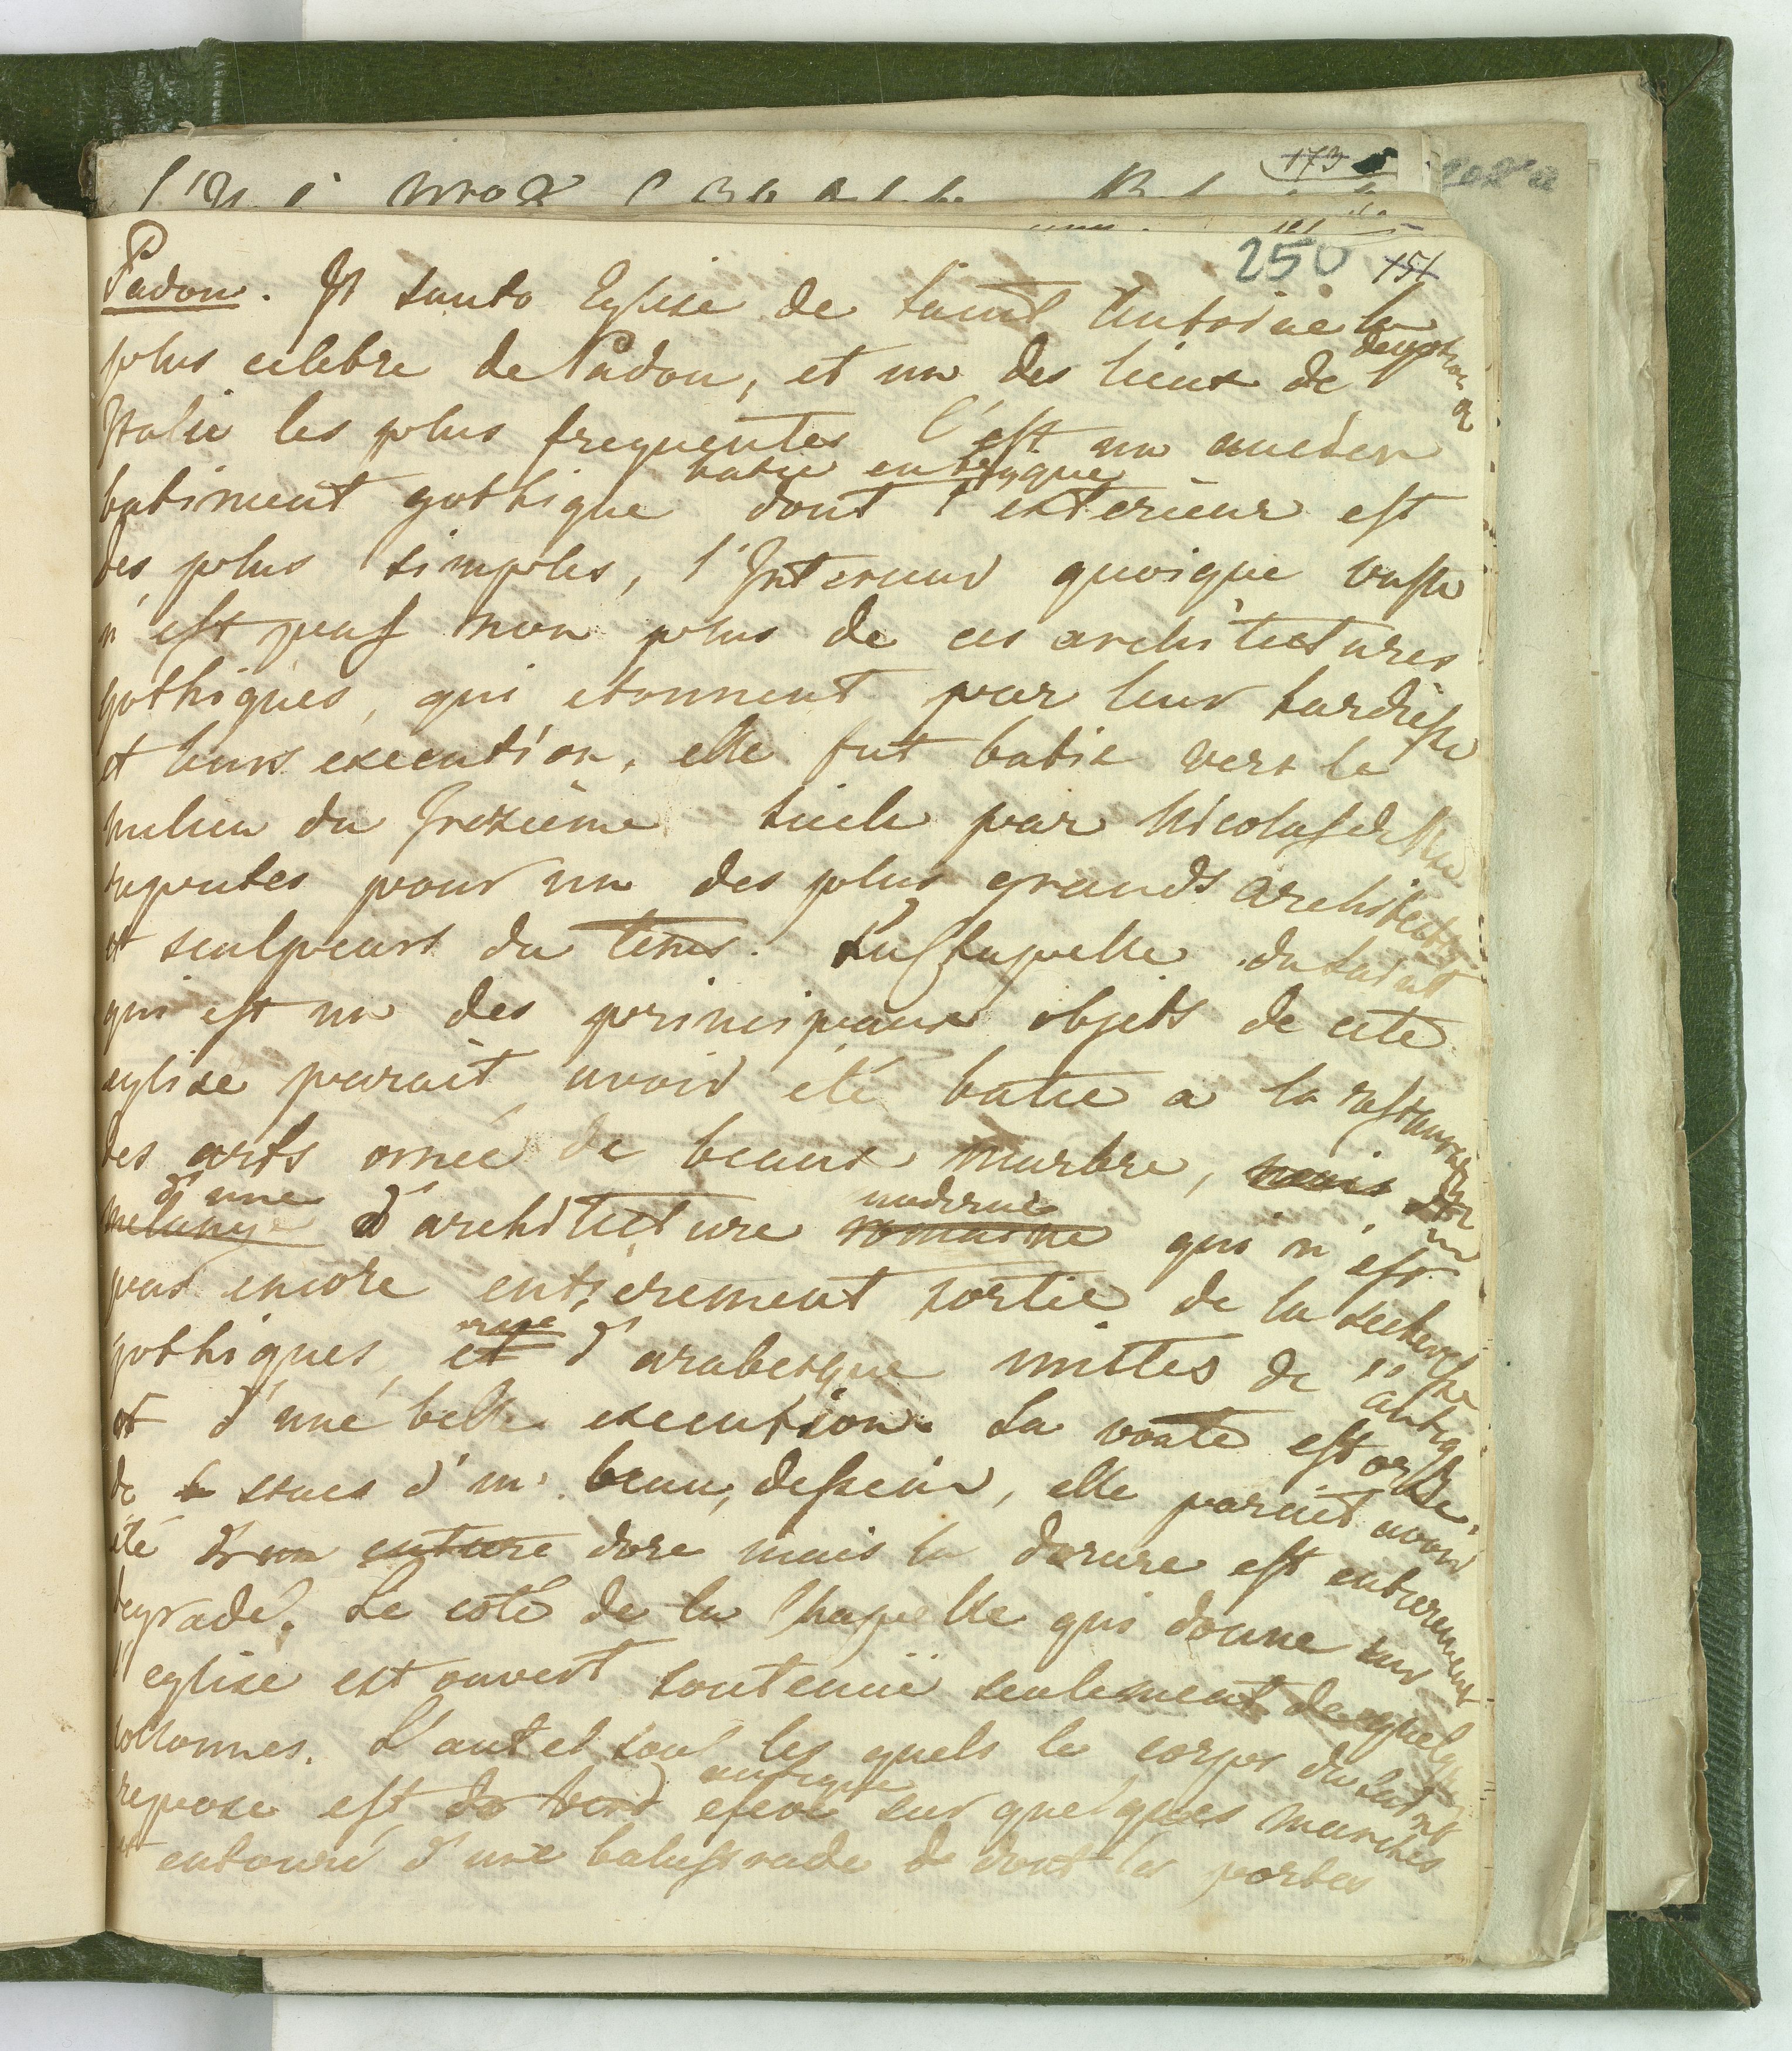 250 151
Padou. Il santo Eglise de Saint Antoine la
plus celebre de Padou, et un des lieux de devotion
Italie les plus frequentes C'est un ancien
batiment gothique batie en brique dont l'exterieur est
des plus simples, l'Interieur quoique vaste
n'est pas non plus de ces architectures
gothiques, qui etonnent par leur hardiesse
et leurs execution, elle fut batie vers le
milieu du trezieme siecle par Nicolas de
reputes pour un des plus grands architectes
et sculpeurs du tems. La Chapelle du saint
qui est un des principaux objets de cete
eglise parait avoir été batie a la restauration
des arts ornée de beaux marbre, mais
melange d'une d'architecture romaine moderne qui n'est
pas encore entierement sortie de la secheresse
gothiques, et orné d'arabesque imites de l'antique
et d'une belle execution. La voute est ornée
de stucs d'un beau dessein, elle parait avoir
été dore mais la dorure est entierement
degradé. Le coté de la Chapelle qui donne sur
l'eglise est ouvert soutenüe seulement de quelques
collonnes. L'autel sous les quels le corps du saint
repose est de verd antique elevé sur quelques marches
et entouré d'une balustrade de dont les portes